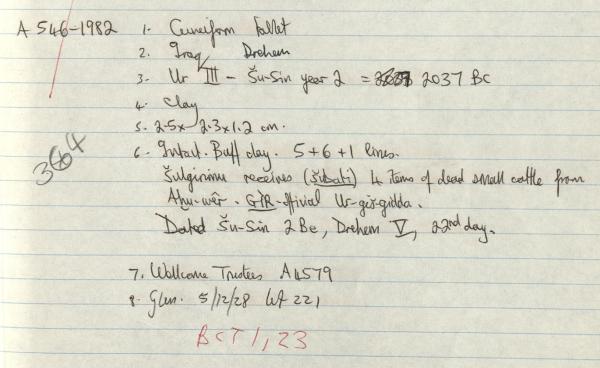 A 546-1982 1. Cuneiform Tablet
2. Iraq Drehem
3. Ur III - Šu-Sin year 2 = 2037 BC
4. Clay
5. 2.5 x 2.3 x 1.2 cm.
6. Intact. Buff clay. 5+6+1 lines.
Šulgirimu receives (šubati) 4 items of dead small cattle from
Ahu-wêr. GÌR-official Ur-gìr-gidda.
Dated Šu-Sin 2 Be, Drehem V, 22nd day.
364
7. Wellcome Trustees A14579
8. Glen. 5/12/28 Lot 221
BCT 1, 23